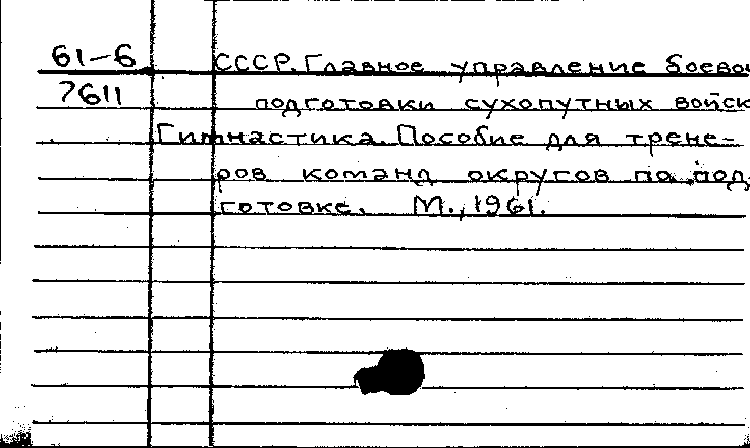 61-6 СССР. Главное управление боевой
7611 подготовки сухопутных войск
Гимнастика. Пособие для трене-
ров команд округов по под-
готовке. М., 1961.